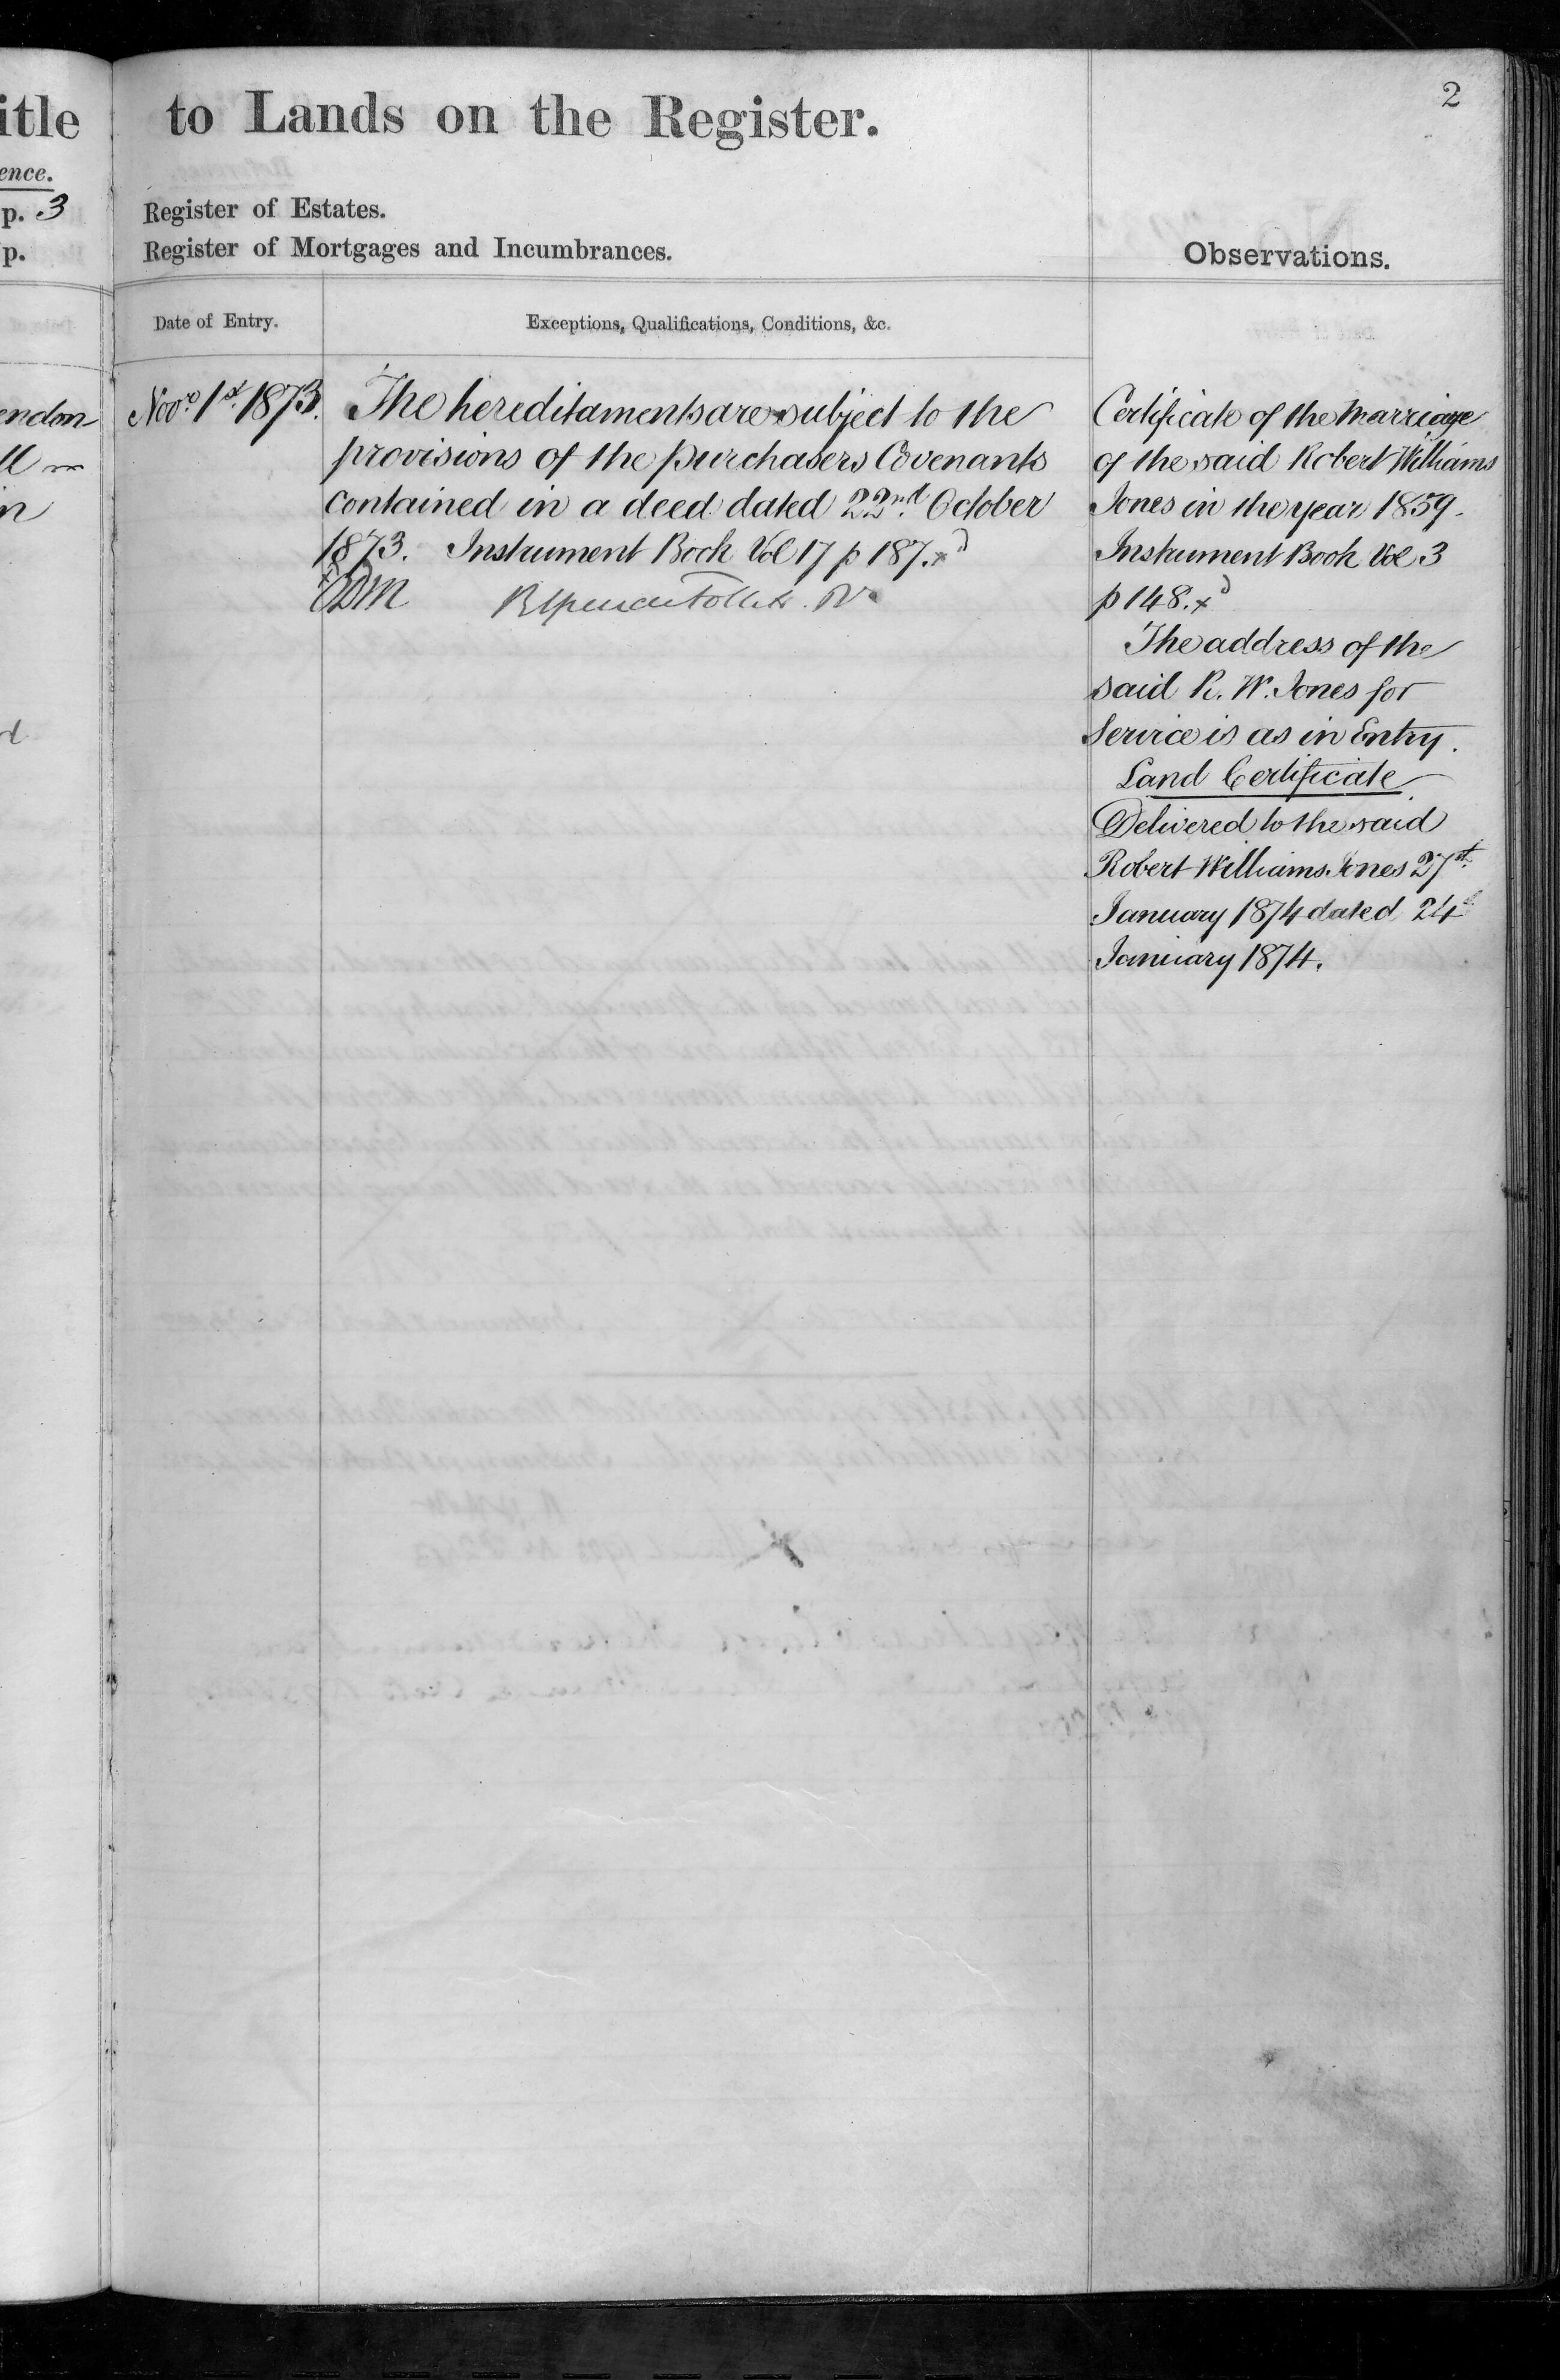 itle
ence.
p. 3
p.
endon
ll
in
d
2
to Lands on the Register.
Register of Estates.
Register of Mortgages and Incumbrances.
Observations.
Date of Entry.
Exceptions, Qualifications, Conditions, &c.
Novr 1st 1873.
The hereditaments are subject to the
provisions of the purchasers Covenants
contained in a deed dated 22nd October
1873. Instrument Book Vol 17 p 187. xd
Certificate of the Marriage
of the said Robert Williams
Jones in the year 1859.
Instrument Book Vol 3
p 148. xd
The address of the
said R. W. Jones for
Service is as in Entry.
Land Certificate
Delivered to the said
Robert Williams Jones 27th
January 1874 dated 24th
January 1874.